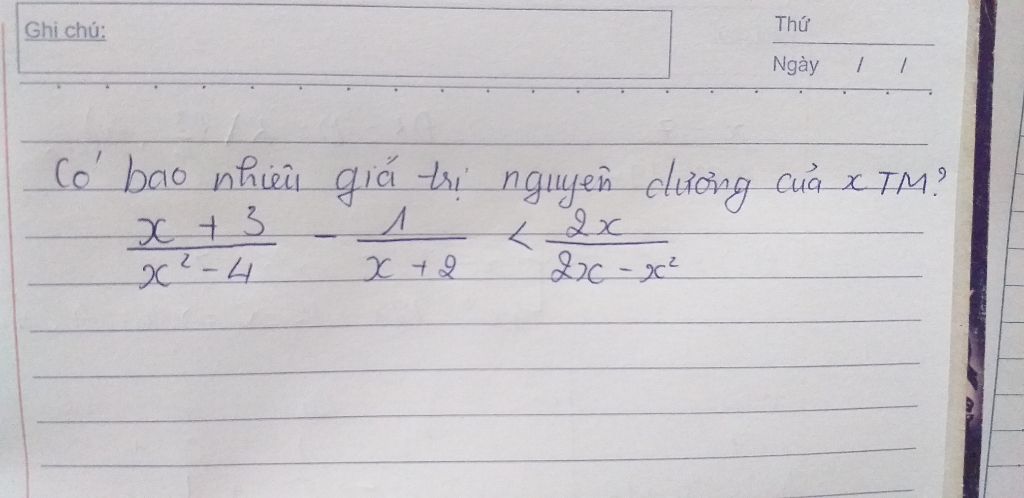 Ghi chú:
Thứ
Ngày / /
Có bao nhiêu giá trị nguyên dương của x TM?
x + 3 / x² - 4 - 1 / x + 2 < 2x / 2x - x²